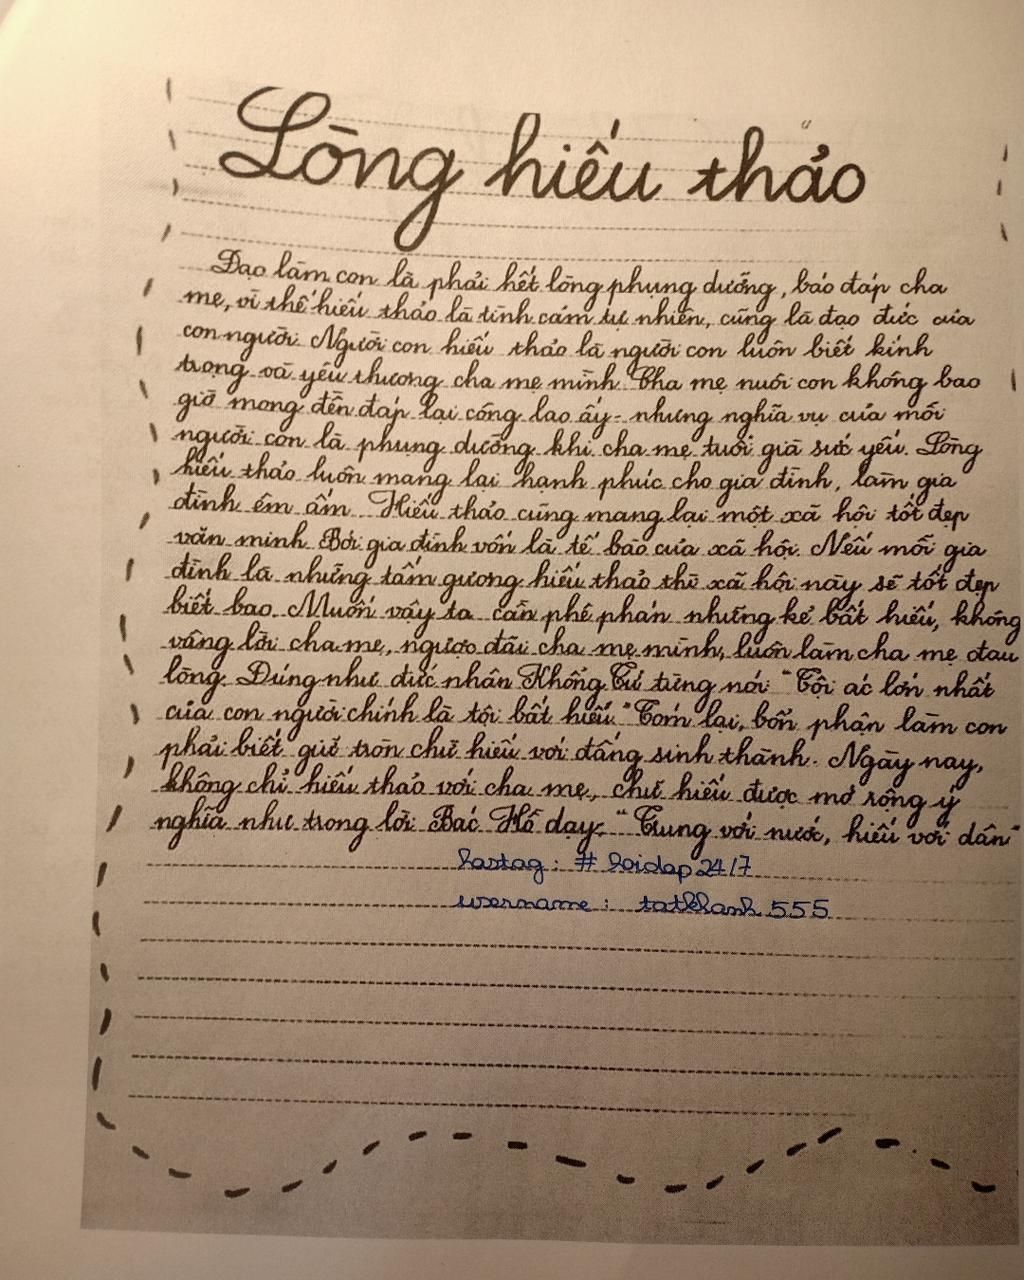 Lòng hiếu thảo
Đạo làm con là phải hết lòng phụng dưỡng, báo đáp cha
mẹ, vì thế hiếu thảo là tình cảm tự nhiên, cũng là đạo đức của
con người. Người con hiếu thảo là người con luôn biết kính
trọng và yêu thương cha mẹ mình. Cha mẹ nuôi con không bao
giờ mong đền đáp lại công lao ấy- nhưng nghĩa vụ của mỗi
người con là phụng dưỡng khi cha mẹ tuổi già sức yếu. Lòng
hiếu thảo luôn mang lại hạnh phúc cho gia đình, làm gia
đình êm ấm. Hiếu thảo cũng mang lại một xã hội tốt đẹp
văn minh. Bởi gia đình vốn là tế bào của xã hội. Nếu mỗi gia
đình là những tấm gương hiếu thảo thì xã hội này sẽ tốt đẹp
biết bao. Muốn vậy ta cần phê phán những kẻ bất hiếu, không
vâng lời cha mẹ, ngược đãi cha mẹ mình, luôn làm cha mẹ đau
lòng. Đúng như đức nhân Khổng Tử từng nói: "Tội ác lớn nhất
của con người chính là tội bất hiếu". Tóm lại, bổn phận làm con
phải biết giữ tròn chữ hiếu với đấng sinh thành. Ngày nay,
không chỉ hiếu thảo với cha mẹ, chữ hiếu được mở rộng ý
nghĩa như trong lời Bác Hồ dạy: "Trung với nước, hiếu với dân"
hastag: # hoidap24/7
username: tatkhanh555